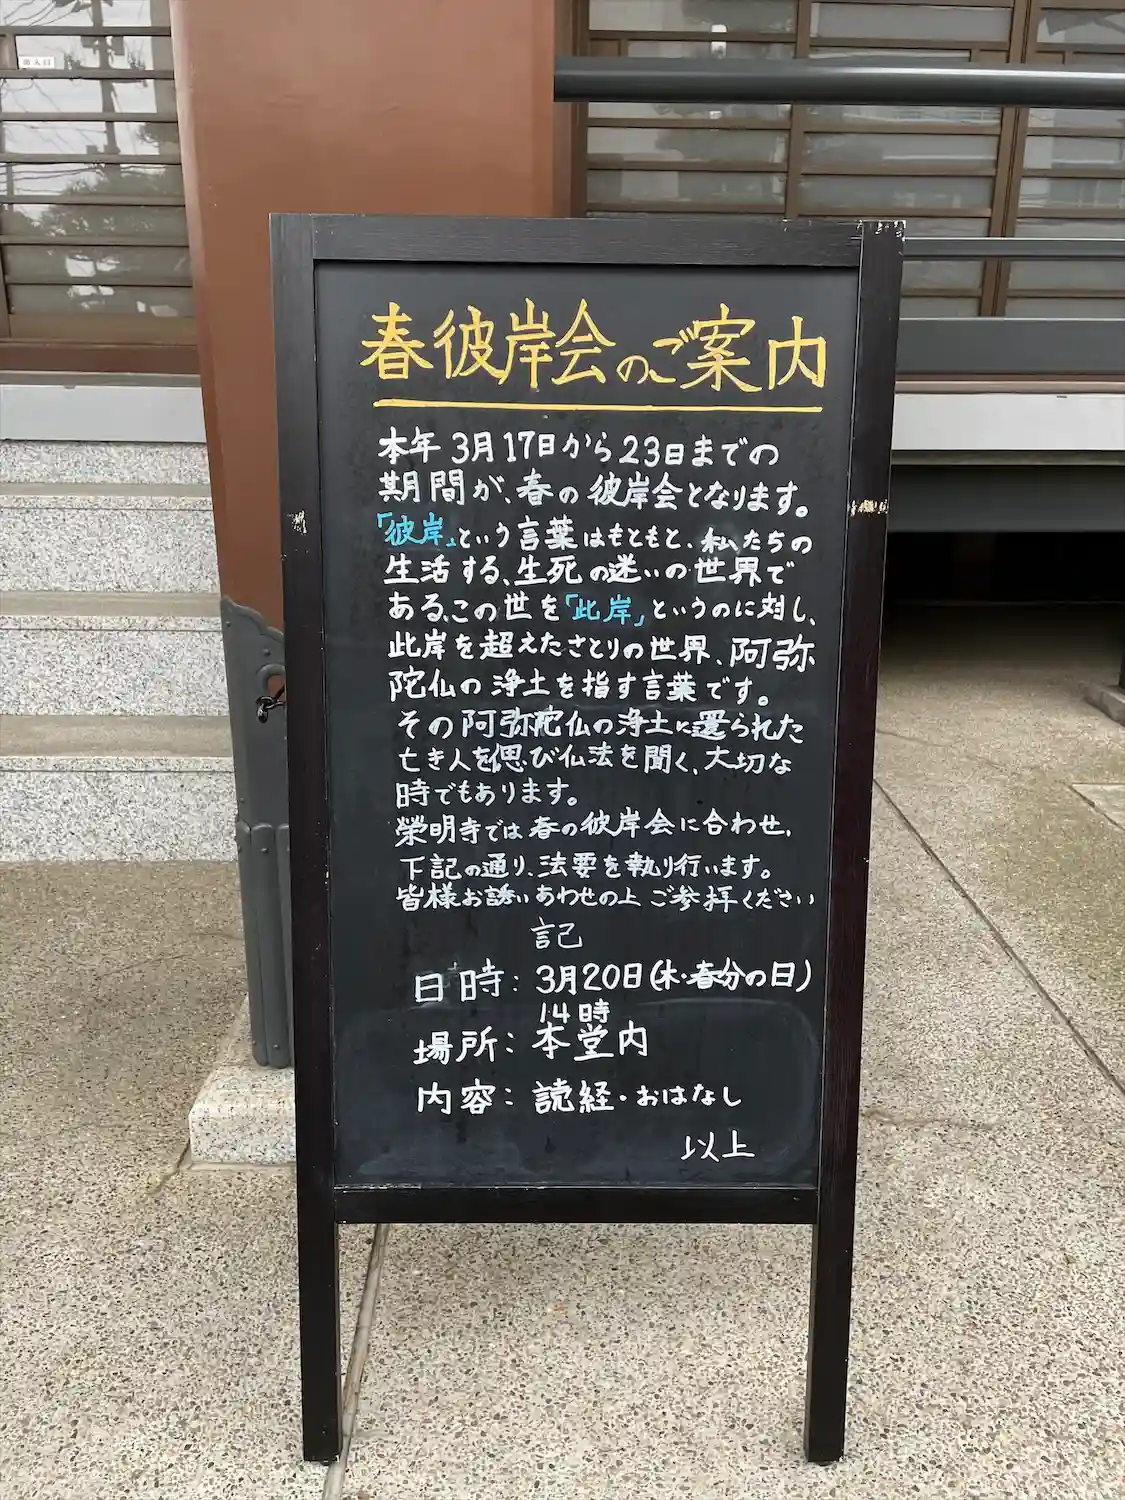 春彼岸会のご案内
本年3月17日から23日までの
期間が、春の彼岸会となります。
「彼岸」という言葉はもともと、私たちの
生活する、生死の迷いの世界で
ある、この世を「此岸」というのに対し、
此岸を超えたさとりの世界、阿弥
陀仏の浄土を指す言葉です。
その阿弥陀仏の浄土に還られた
亡き人を偲び仏法を聞く、大切な
時でもあります。
榮明寺では春の彼岸会に合わせ、
下記の通り、法要を執り行います。
皆様お誘いあわせの上ご参拝ください
記
日時：3月20日(木・春分の日)
14時
場所：本堂内
内容：読経・おはなし
以上